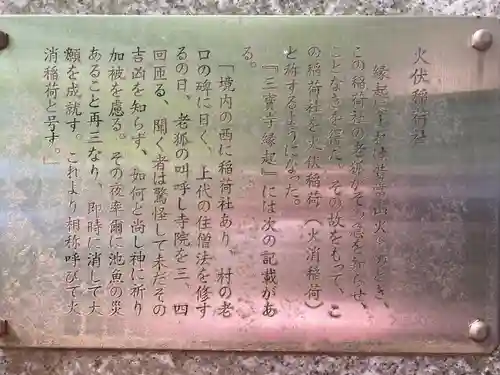 火伏稲荷社
縁起によれば
この稲荷社の老狐がそ
ことなきを得た。その故をもって、こ
の稲荷社を火伏稲荷(火消稲荷)
と称するようになった。
『三寳寺縁起』には次の記載があ
る。
「境内の西に稲荷社あり。村の老
口の碑に曰く、上代の住僧法を修す
るの日、老狐の叫呼し寺院を三、四
回匝る、聞く者は驚怪して未だその
吉凶を知らず、如何と尚し神に祈り
加被を慮る。その夜率爾に池魚の災
あること再三なり、即時に消して大
願を成就す。これより相称呼びて火
消稲荷と号す。」